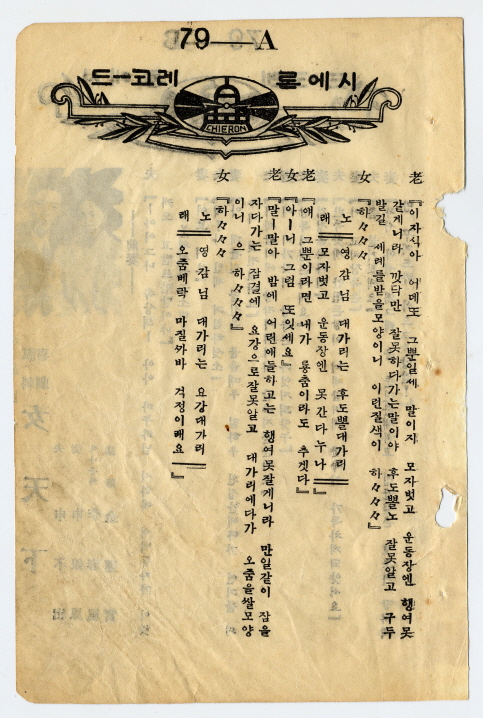 79—A
시에론 레코—드
CHIERON
老 『이자식아 어데또 그뿐일세 말이지 모자벗고 운동장엔 행여못
갈게니라 깟닥만 잘못하다가는말이야 후도뽈노 잘못알고 구두
발길 세례를받을모양이니 이런질색이 하々々々』
女 『하々々々
노 영감님 대가리는 후도뽈대가리
래 모자벗고 운동장엔 못 간다누나』
老 『얘 그뿐이라면 내가 룡춤이라도 추겟다』
女 『아—니 그럼 또잇세요』
老 『말—말아 밤에 어린애들하고는 행여못잘게니라 만일같이 잠을
자다가는 잠결에 요강으로잘못알고 대가리에다가 오줌을쌀모양
이니 으 하々々々』
女 『하々々々
노 영감님 대가리는 요강대가리
래 오줌베락 마질까바 걱정이례요』